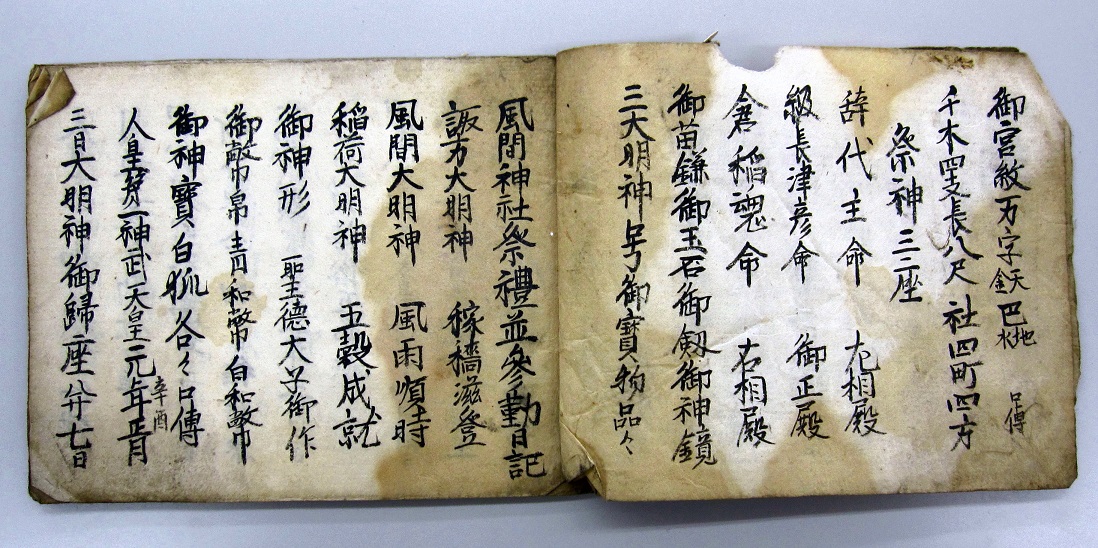 御宮紋万字天金巴地水 口傳
千木四支長八尺 社四町四方
祭神三座
辞代主命 左相殿
級長津彦命 御正殿
倉稲魂命 右相殿
御苗鎌御玉石御劔御神鏡
三大明神号御寳物品々
風間神社祭禮並參勤日記
諏方大明神 稼穑滋登
風間大明神 風雨順時
稲荷大明神 五穀成就
御神形 聖德太子御作
御幣帛 青和幣白和幣
御神寶白狐各々口傳
人皇神武天皇元年辛酉
三日大明神御歸座 七日